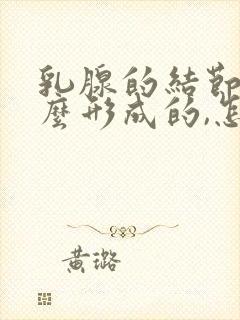 乳腺的結節
麼形成的,怎
黄璐